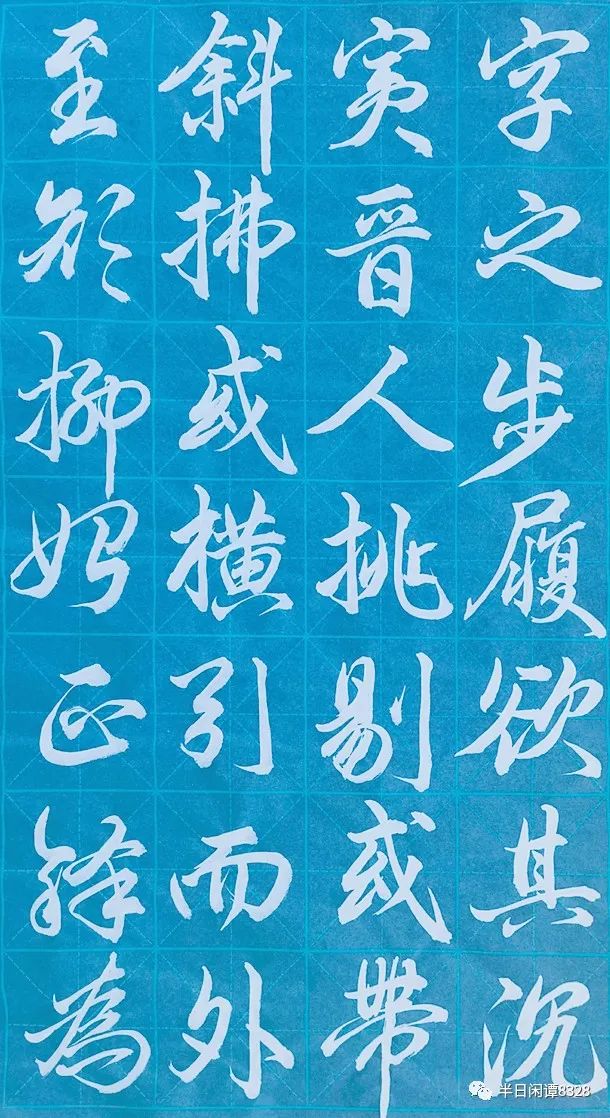 字之步履欲其沉
实晋人挑剔或帶
斜拂或横引而外
至颜柳始正鋒為
半日闲谭8328